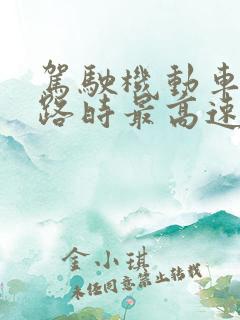 駕駛機動車
路時最高速
金小琪
未經同意禁止轉載